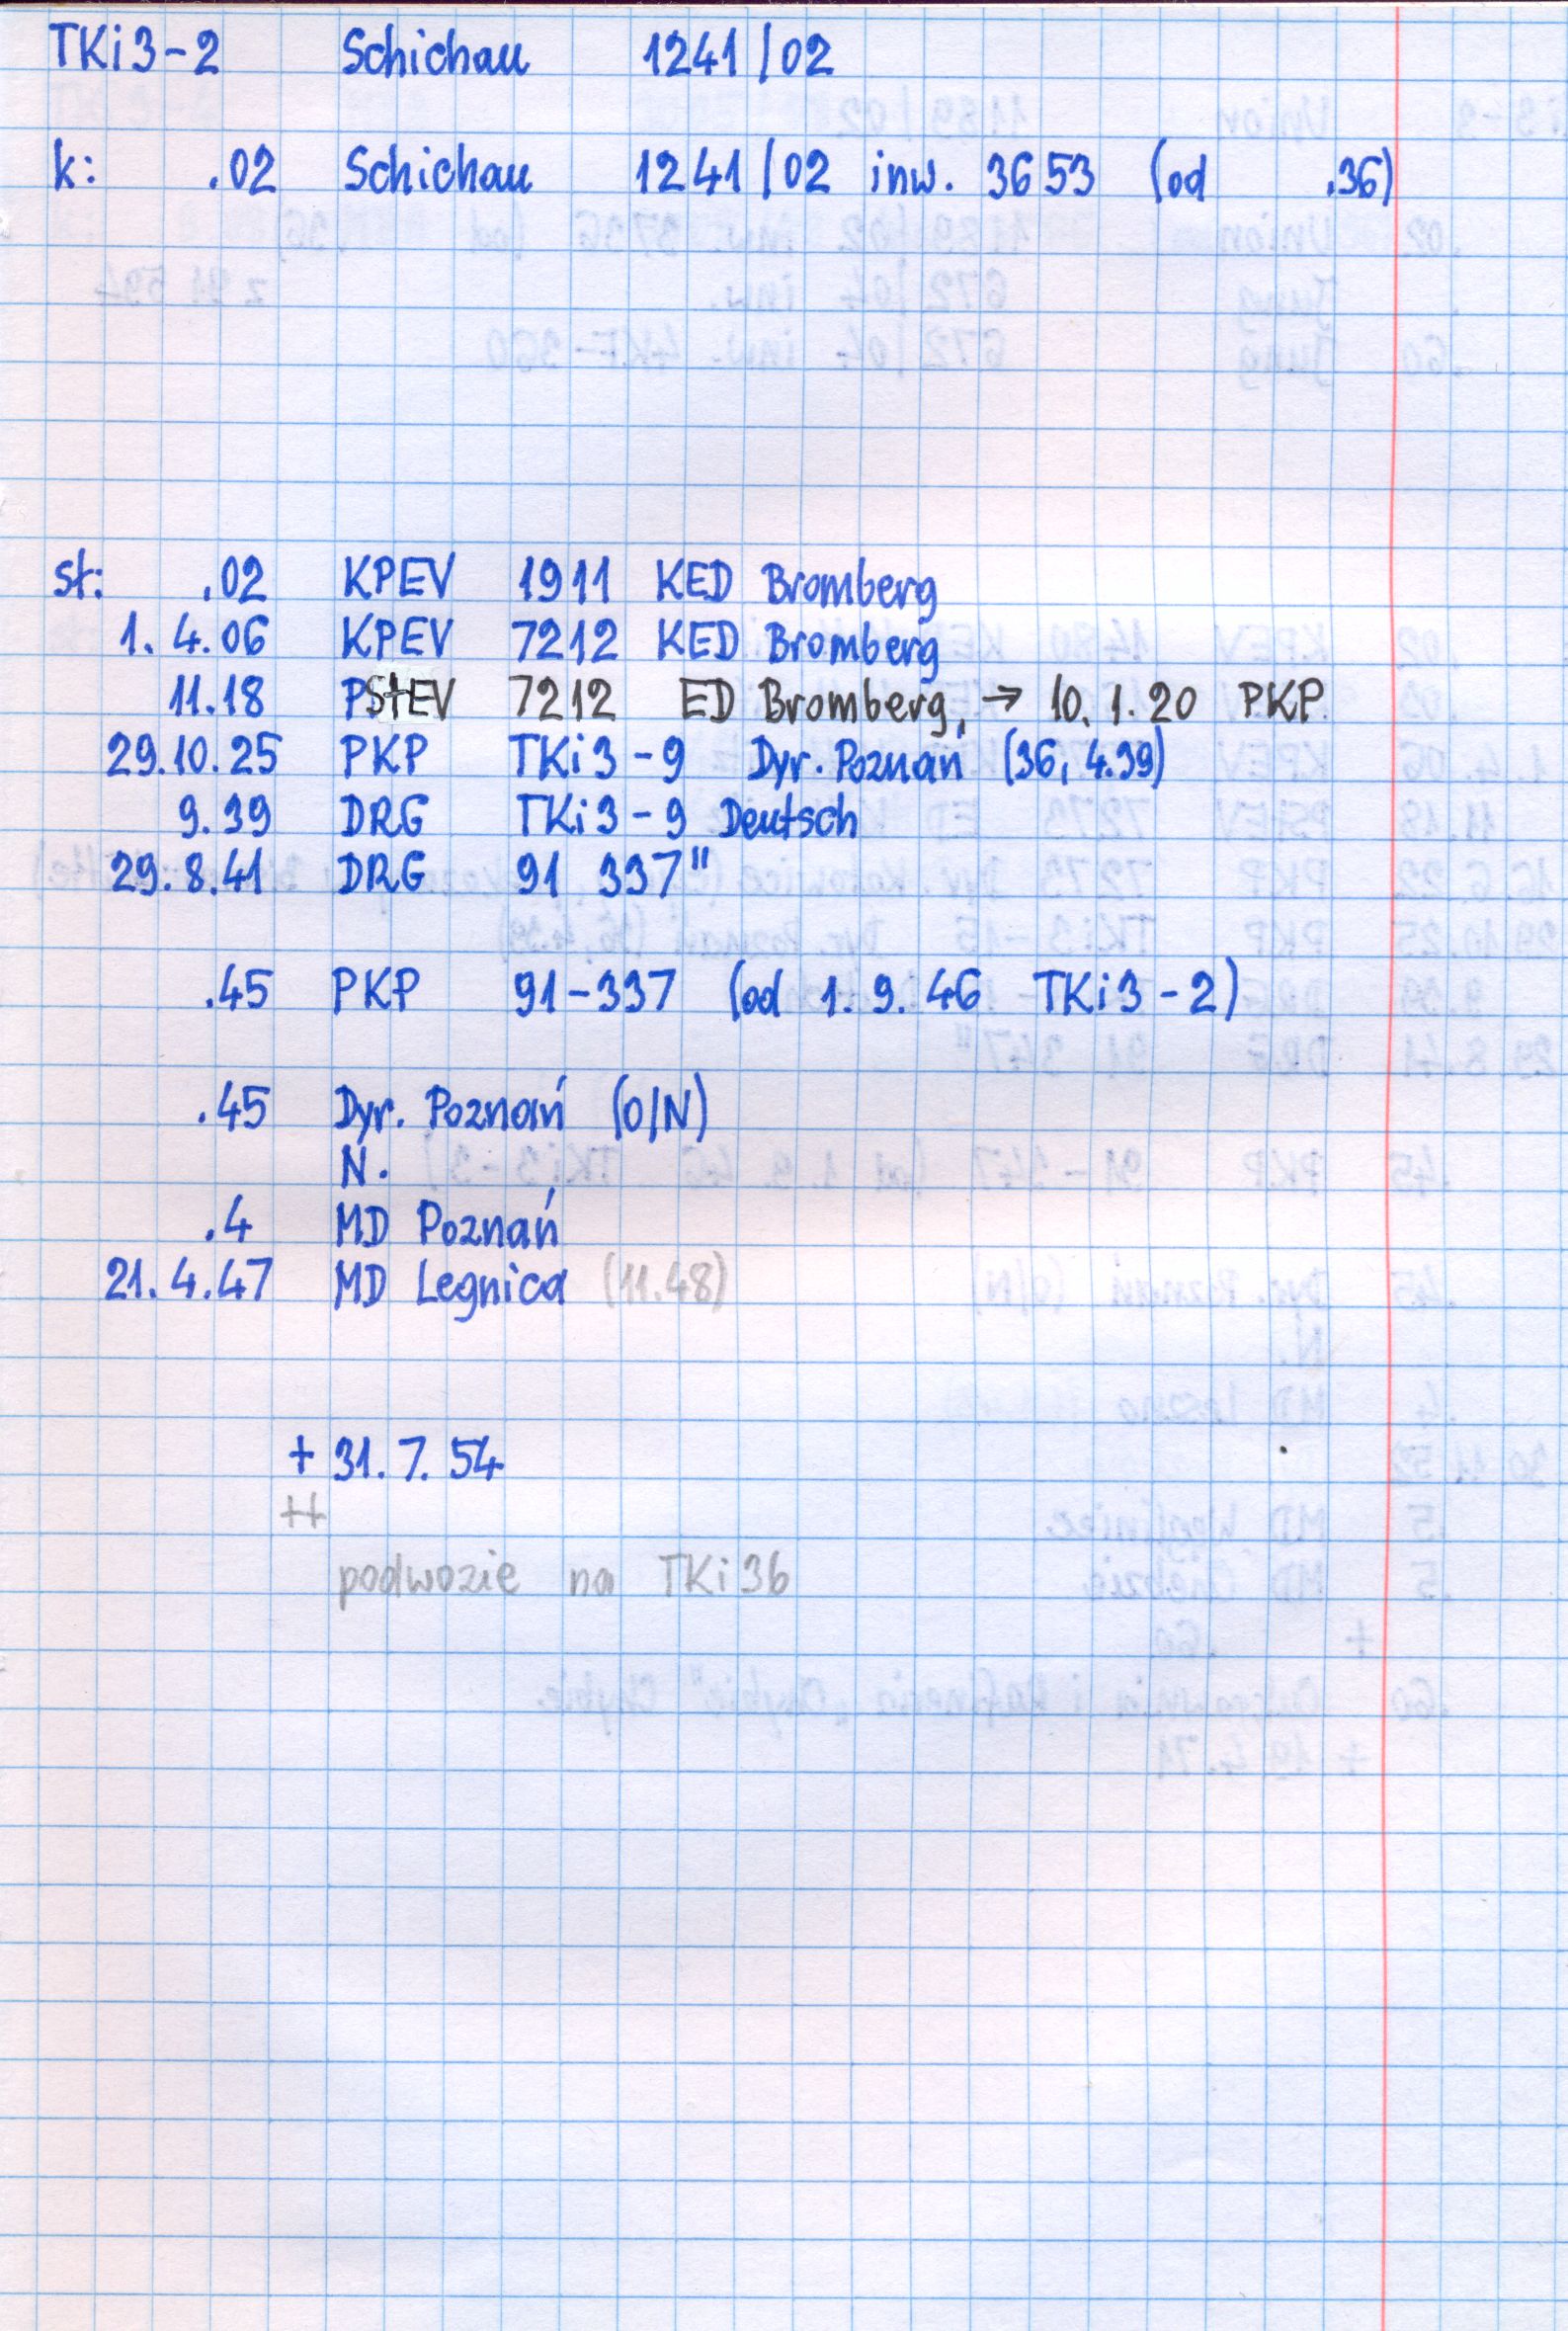 TKi3-2 Schichau 1241/02
k: .02 Schichau 1241/02 inw. 3653 (od .36)
st: .02 KPEV 1911 KED Bromberg
1.4.06 KPEV 7212 KED Bromberg
11.18 PStEV 7212 ED Bromberg, → 10.1.20 PKP
29.10.25 PKP TKi3-9 Dyr. Poznań (36, 4.39)
9.39 DRG TKi3-9 Deutsch
29.8.41 DRG 91 337"
.45 PKP 91-337 (od 1.9.46 TKi3-2)
.45 Dyr. Poznań (O/N)
N.
.4 MD Poznań
21.4.47 MD Legnica (11.48)
+ 31.7.54
++
podwozie na TKi3b